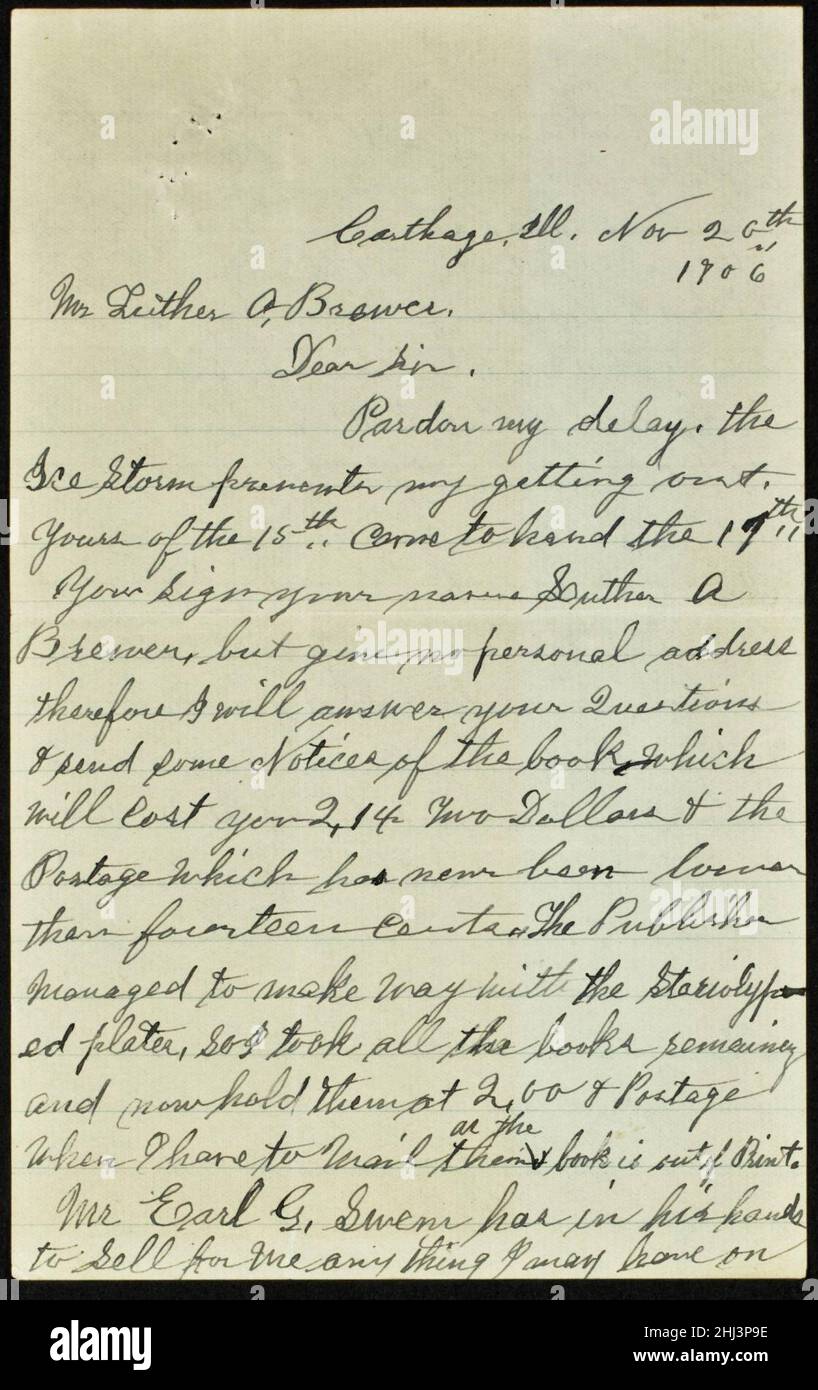 Carthage, Ill. Nov 20th
1906
Mr Luther A, Brewer.
Dear Sir.
Pardon my delay. the
Ice Storm prevents my getting out.
Yours of the 15th Came to hand the 19th
Your sign your name Luther A
Brewer, but give no personal address
therefore I will answer your Questions
& send some Notices of the book, which
will Cost you 2,14 Two Dollars & the
Postage which has never been lower
than fourteen cents. The Publisher
managed to make way with the Steriotyp
ed plates, So I took all the books remaining
and now hold them at 2,00 & Postage
as the
When I have to Mail them book is out of Print.
Mr Earl G. Swem has in his hands
to Sell for me any thing I may have on
alamy
Image ID: 2HJ3P9E
www.alamy.com